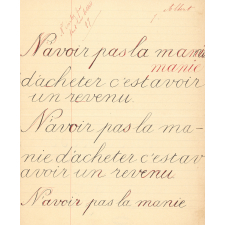 Albert
N'avoir pas la manie
manie
d'acheter c'est avoir
un revenu
N'avoir pas la ma-
nie d'acheter c'est av
avoir un revenu
N'avoir pas la manie